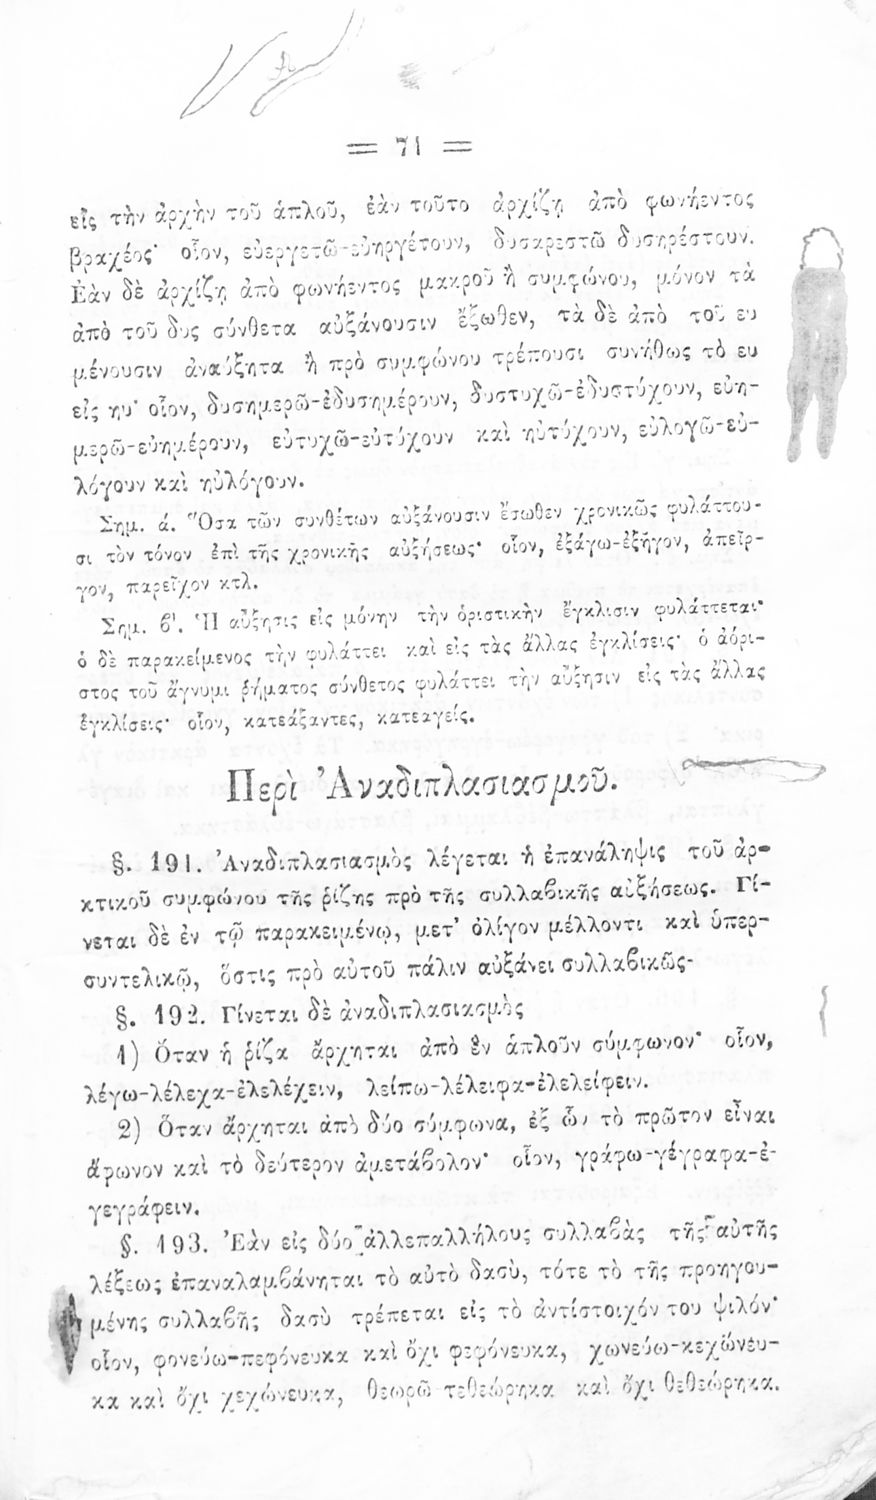 = 71 =
εἰς τὴν ἀρχὴν τοῦ ἁπλοῦ, ἐὰν τοῦτο ἀρχίζῃ ἀπὸ φωνήεντος
βραχέος· οἷον, εὐεργετῶ-εὐηργέτουν, δυσαρεστῶ δυσηρέστουν.
Ἐὰν δὲ ἀρχίζῃ ἀπὸ φωνήεντος μακροῦ ἢ συμφώνου, μόνον τὰ
ἀπὸ τοῦ δυς σύνθετα αὐξάνουσιν ἔξωθεν, τὰ δὲ ἀπὸ τοῦ ευ
μένουσιν ἀναύξητα ἢ πρὸ συμφώνου τρέπουσι συνήθως τὸ ευ
εἰς ηυ· οἷον, δυσημερῶ-ἐδυσημέρουν, δυστυχῶ-ἐδυστύχουν, εὐη-
μερῶ-εὐημέρουν, εὐτυχῶ-εὐτύχουν καὶ ηὐτύχουν, εὐλογῶ-εὐ-
λόγουν καὶ ηὐλόγουν.
Σημ. ά. Ὅσα τῶν συνθέτων αὐξάνουσιν ἔσωθεν χρονικῶς φυλάττου-
σι τὸν τόνον ἐπὶ τῆς χρονικῆς αὐξήσεως· οἷον, ἐξάγω-ἐξῆγον, ἀπεῖρ-
γον, παρεῖχον κτλ.
Σημ. β'. Ἡ αὔξησις εἰς μόνην τὴν ὁριστικὴν ἔγκλισιν φυλάττεται·
ὁ δὲ παρακείμενος τὴν φυλάττει καὶ εἰς τὰς ἄλλας ἐγκλίσεις· ὁ ἀόρι-
στος τοῦ ἄγνυμι ῥήματος σύνθετος φυλάττει τὴν αὔξησιν εἰς τὰς ἄλλας
ἐγκλίσεις· οἷον, κατεάξαντες, κατεαγείς.
Περὶ Ἀναδιπλασιασμοῦ.
§. 191. Ἀναδιπλασιασμὸς λέγεται ἡ ἐπανάληψις τοῦ ἀρ-
κτικοῦ συμφώνου τῆς ῥίζης πρὸ τῆς συλλαβικῆς αὐξήσεως. Γί-
νεται δὲ ἐν τῷ παρακειμένῳ, μετ' ὀλίγον μέλλοντι καὶ ὑπερ-
συντελικῷ, ὅστις πρὸ αὐτοῦ πάλιν αὐξάνει συλλαβικῶς-
§. 192. Γίνεται δὲ ἀναδιπλασιασμὸς
1) Ὅταν ἡ ῥίζα ἄρχηται ἀπὸ ἓν ἁπλοῦν σύμφωνον· οἷον,
λέγω-λέλεχα-ἐλελέχειν, λείπω-λέλειφα-ἐλελείφειν.
2) Ὅταν ἄρχηται ἀπὸ δύο σύμφωνα, ἐξ ὧν τὸ πρῶτον εἶναι
ἄφωνον καὶ τὸ δεύτερον ἀμετάβολον· οἷον, γράφω-γέγραφα-ἐ-
γεγράφειν.
§. 193. Ἐὰν εἰς δύο ἀλλεπαλλήλους συλλαβὰς τῆς αὐτῆς
λέξεως ἐπαναλαμβάνηται τὸ αὐτὸ δασὺ, τότε τὸ τῆς προηγου-
μένης συλλαβῆς δασὺ τρέπεται εἰς τὸ ἀντίστοιχόν του ψιλόν·
οἷον, φονεύω-πεφόνευκα καὶ ὄχι φεφόνευκα, χωνεύω-κεχώνευ-
κα καὶ ὄχι χεχώνευκα, θεωρῶ τεθεώρηκα καὶ ὄχι θεθεώρηκα.